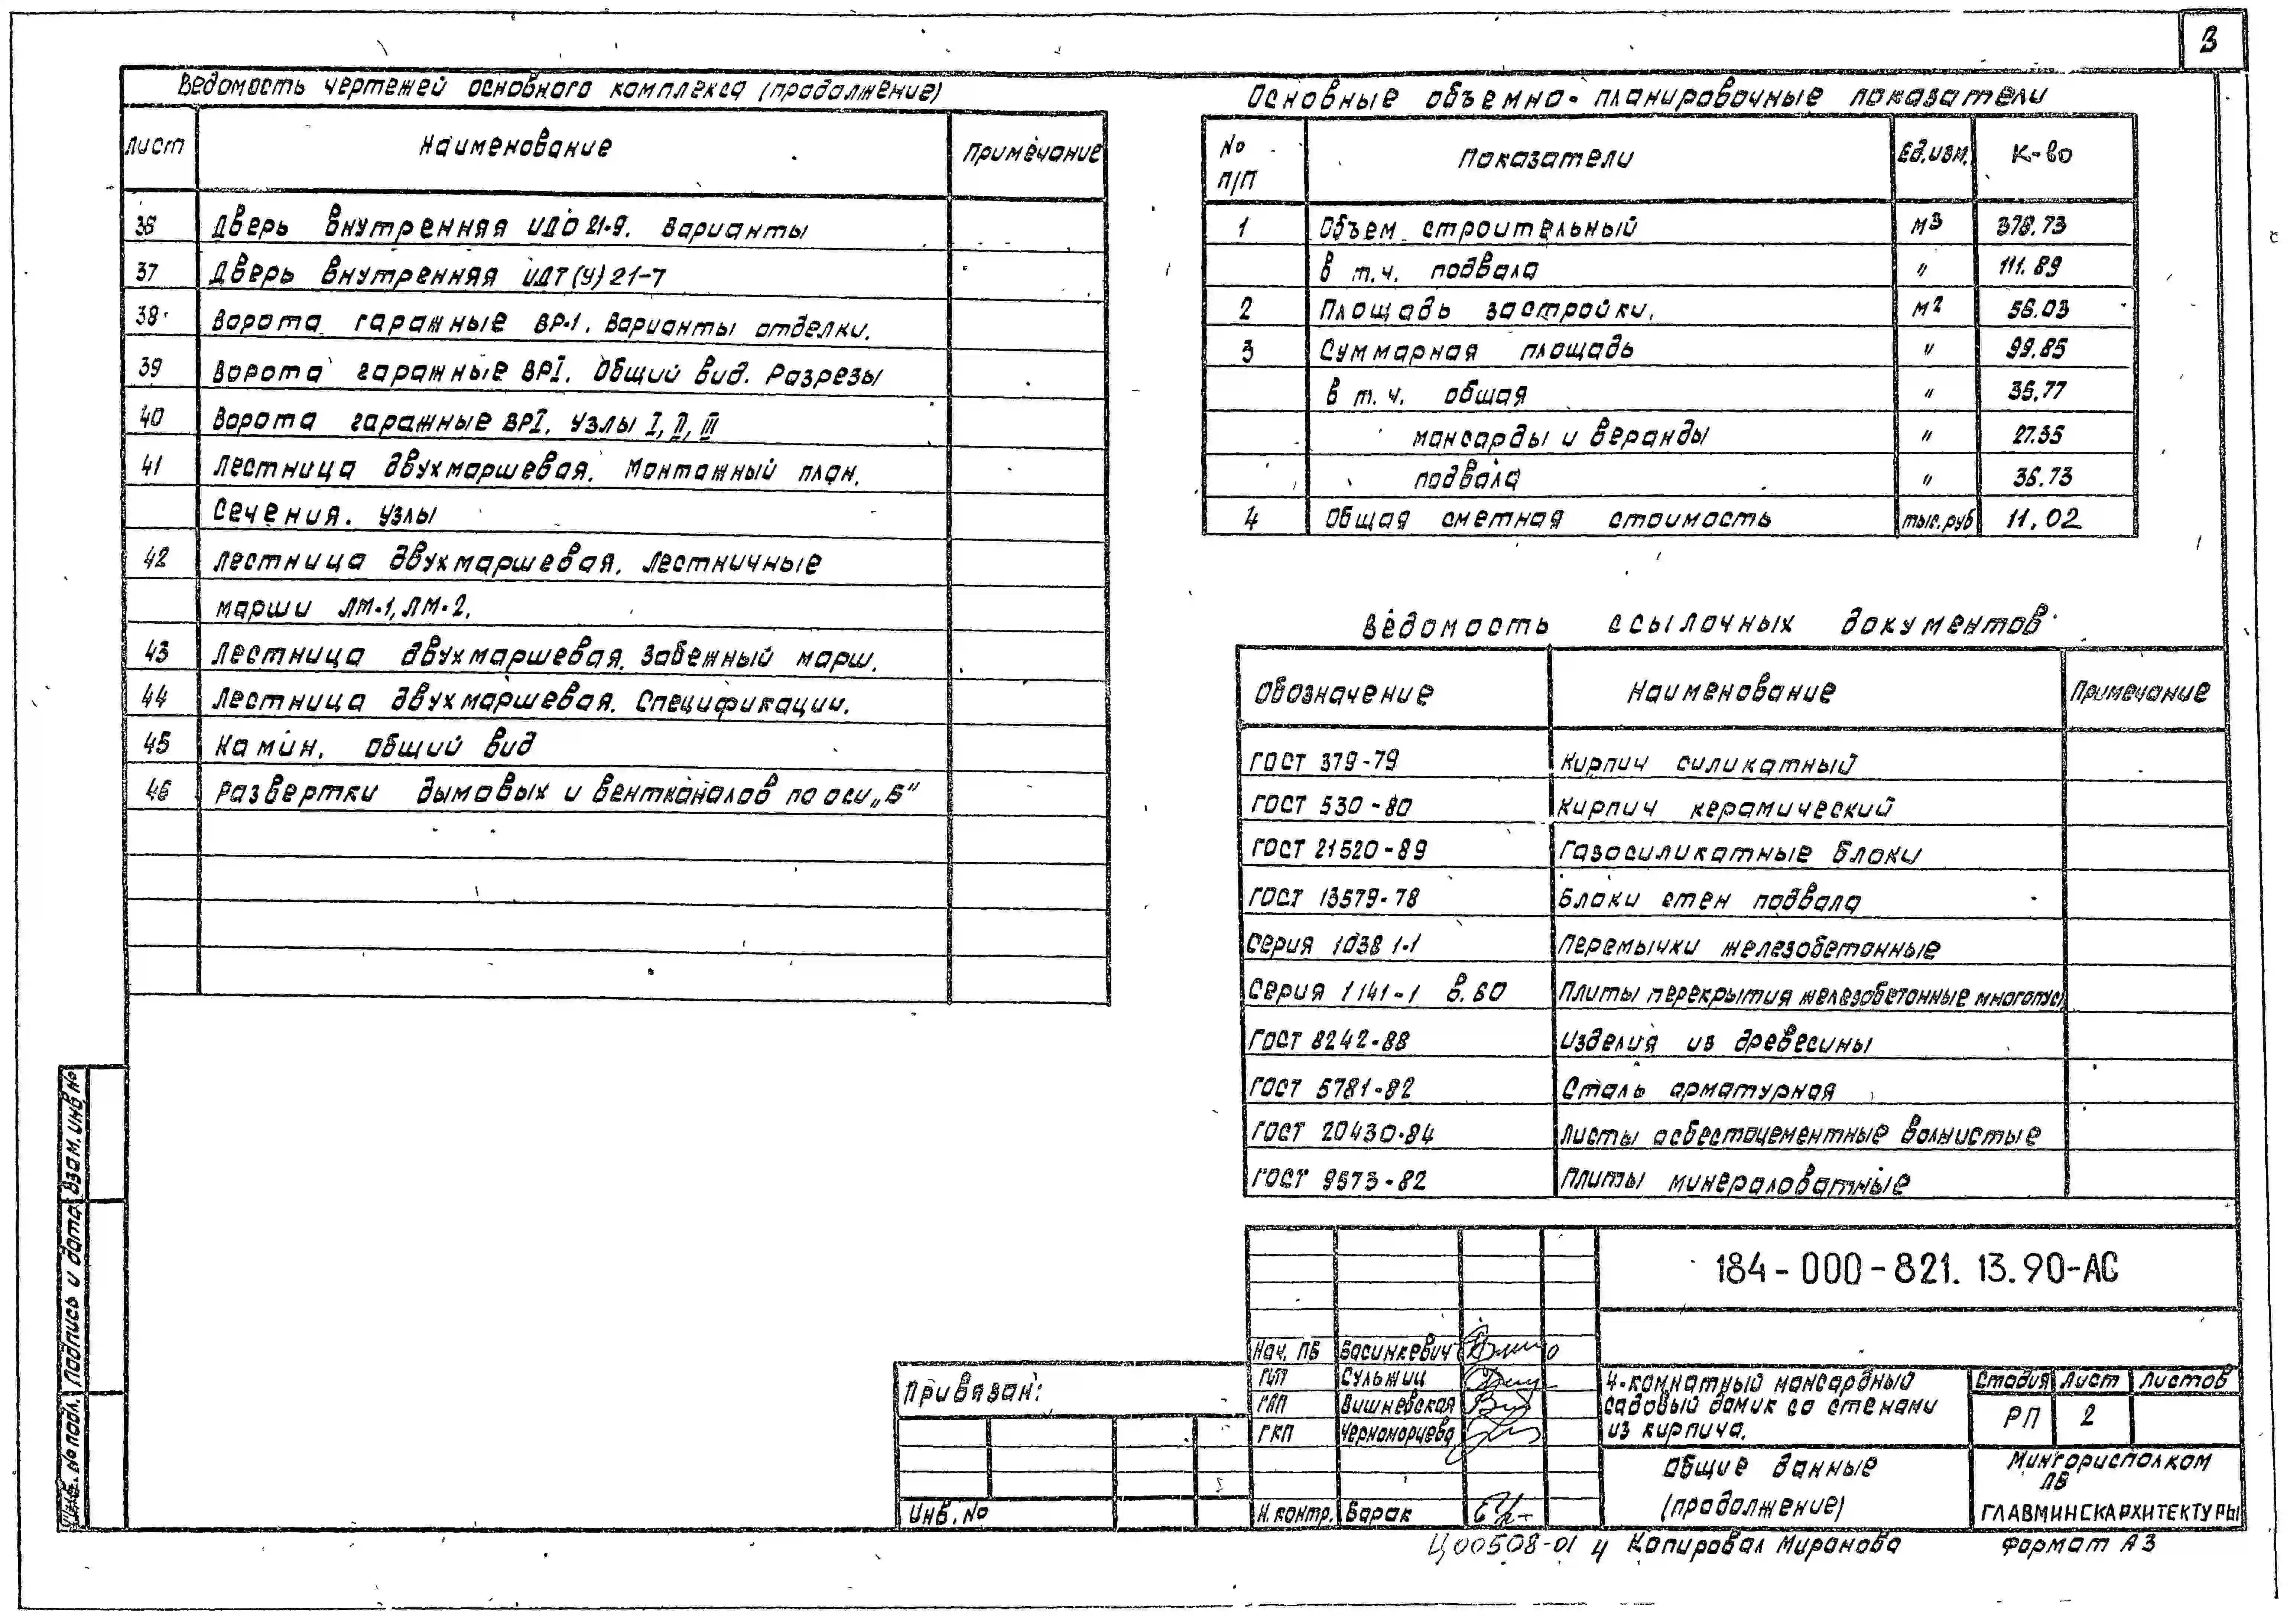 3
Ведомость чертежей основного комплекса (продолжение)
Лист Наименование Примечание
36 Дверь внутренняя ИДО 21-9. Варианты
37 Дверь внутренняя ИДТ(У) 21-7
38 Ворота гаражные ВР-1. Варианты отделки.
39 Ворота гаражные ВРI. Общий вид. Разрезы
40 Ворота гаражные ВРI. Узлы I, II, III
41 Лестница двухмаршевая. Монтажный план.
Сечения. Узлы
42 Лестница двухмаршевая. Лестничные
марши ЛМ-1, ЛМ-2.
43 Лестница двухмаршевая. Забежный марш.
44 Лестница двухмаршевая. Спецификации.
45 Камин. Общий вид
46 Развертки дымовых и вентканалов по оси „Б"
Основные объемно-планировочные показатели
№ п/п Показатели Ед.изм. К-во
1 Объем строительный м3 378.73
в т.ч. подвала " 111.89
2 Площадь застройки. м2 56.03
3 Суммарная площадь " 99.85
в т.ч. общая " 35.77
мансарды и веранды " 27.35
подвала " 36.73
4 Общая сметная стоимость тыс.руб 11.02
Ведомость ссылочных документов
Обозначение Наименование Примечание
ГОСТ 379-79 Кирпич силикатный
ГОСТ 530-80 Кирпич керамический
ГОСТ 21520-89 Газосиликатные блоки
ГОСТ 13579-78 Блоки стен подвала
Серия 1038 1-1 Перемычки железобетонные
Серия 1141-1 в.60 Плиты перекрытия железобетонные многопус
ГОСТ 8242-88 Изделия из древесины
ГОСТ 5781-82 Сталь арматурная
ГОСТ 20430-84 Листы асбестоцементные волнистые
ГОСТ 9573-82 Плиты минераловатные
184-000-821.13.90-АС
Нач. ПБ Васинкевич
ГИП Сульжиц
ГАП Вишневская
ГКП Черноморцева
Н.контр. Барак
4-комнатный мансардный
садовый домик со стенами
из кирпича.
Стадия Лист Листов
РП 2
Общие данные
(продолжение)
Мингорисполком
ПБ
ГЛАВМИНСКАРХИТЕКТУРЫ
Привязан:
Инв. №
Инв. № подл. Подпись и дата Взам. инв №
Ц00508-01 4 Копировал Миранова Формат А3